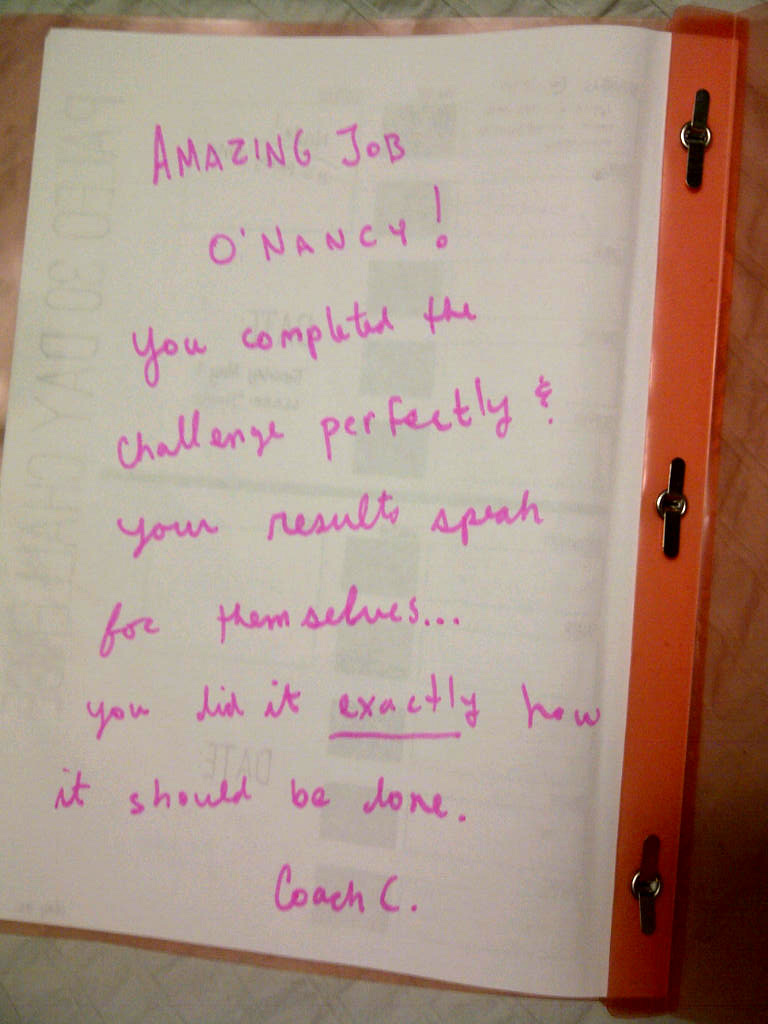 AMAZING JOB
O'NANCY!
you completed the
challenge perfectly &
your results speak
for themselves...
you did it exactly how
it should be done.
Coach C.
PALEO 30 DAY CHALLENGE
DATE
DATE